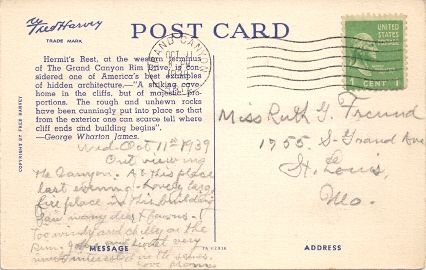 Fred Harvey
TRADE MARK
POST CARD
Hermit's Rest, at the western terminus
of The Grand Canyon Rim Drive, is con-
sidered one of America's best examples
of hidden architecture,—"A striking cave
home in the cliffs, but of majestic pro-
portions. The rough and unhewn rocks
have been cunningly put into place so that
from the exterior one can scarce tell where
cliff ends and building begins".
—George Wharton James.
COPYRIGHT BY FRED HARVEY
GRAND CANYON
OCT
UNITED
STATES
1 CENT 1
Wed- Oct 11th 1939
Out viewing
the Canyon. At this place
last evening. Lovely large
fire place in this building
Saw many deer & fawns -
Too windy and chilly on the
Rim. John and very
much interested in the
Love
Miss Ruth G. Freund
1755 S- Grand Ave
St. Louis,
Mo.
MESSAGE
ADDRESS